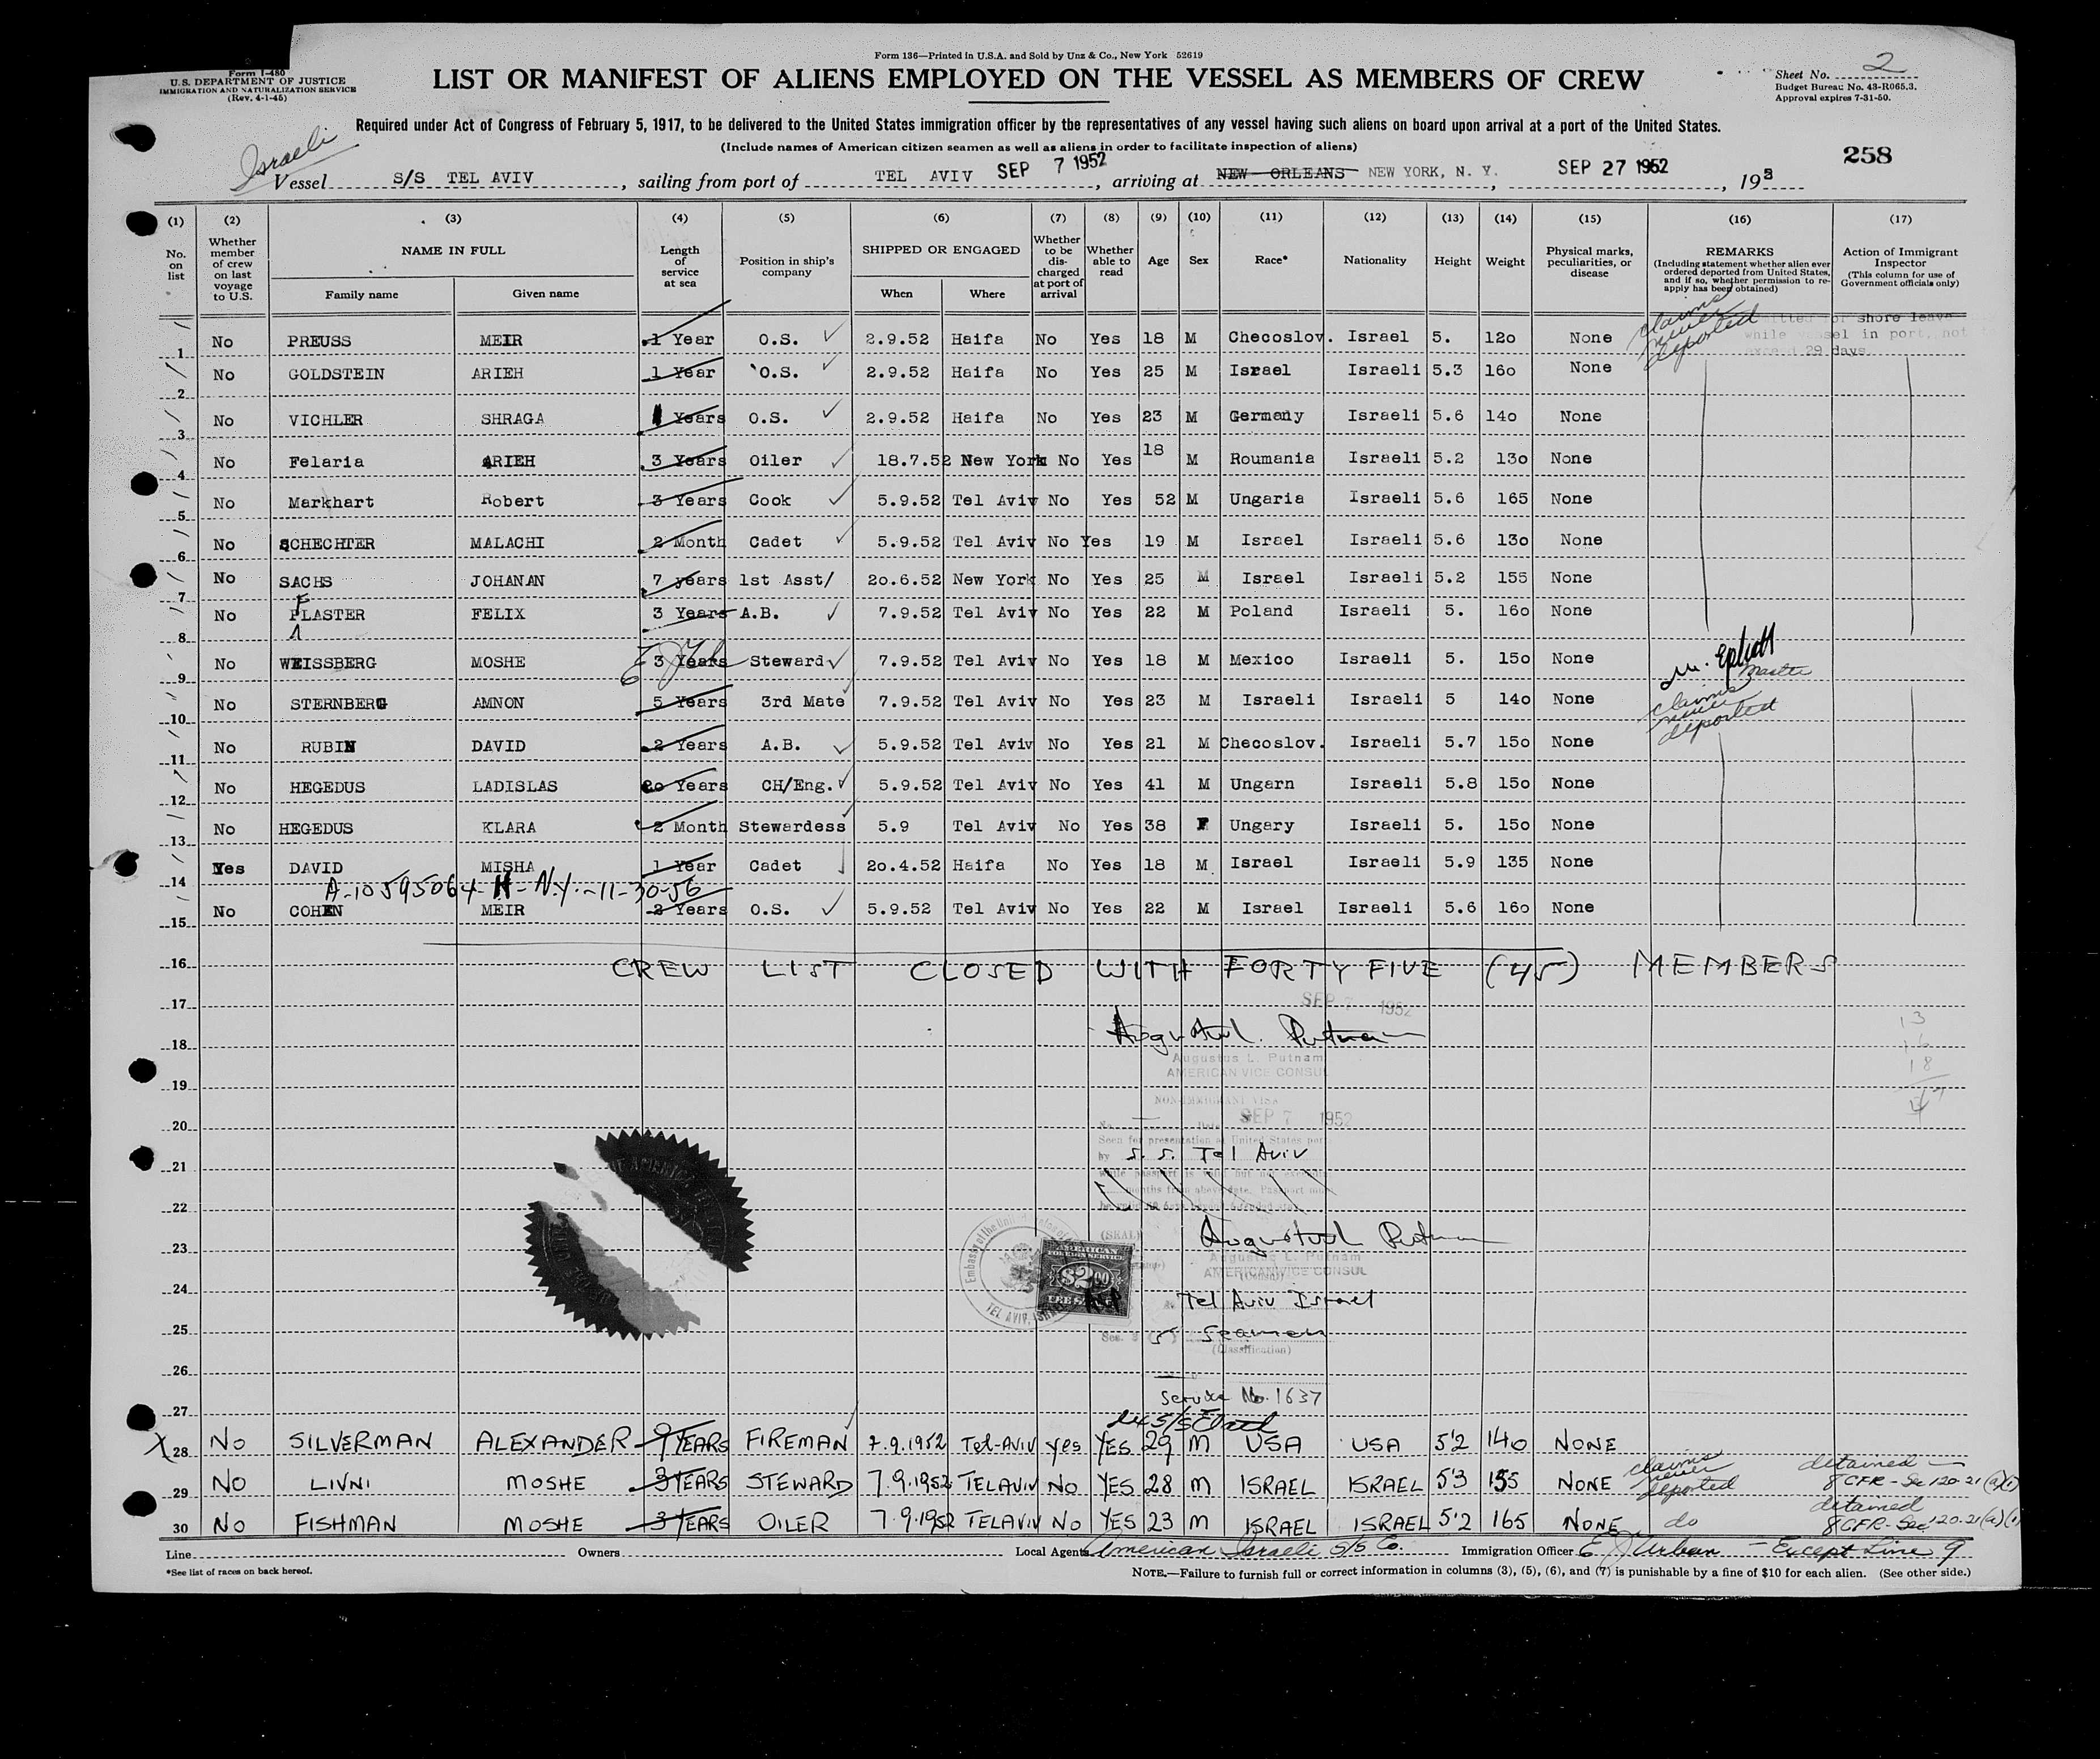 Form 136—Printed in U.S.A. and Sold by Unz & Co., New York 52619
Form I-480
U.S. DEPARTMENT OF JUSTICE
IMMIGRATION AND NATURALIZATION SERVICE
(Rev. 4-1-45)
LIST OR MANIFEST OF ALIENS EMPLOYED ON THE VESSEL AS MEMBERS OF CREW
Sheet No. 2
Budget Bureau No. 43-R065.3.
Approval expires 7-31-50.
Required under Act of Congress of February 5, 1917, to be delivered to the United States immigration officer by the representatives of any vessel having such aliens on board upon arrival at a port of the United States.
(Include names of American citizen seamen as well as aliens in order to facilitate inspection of aliens)
258
Israeli
Vessel S/S TEL AVIV, sailing from port of TEL AVIV SEP 7 1952, arriving at NEW ORLEANS NEW YORK, N. Y., SEP 27 1952, 195
(1) (2) (3) (4) (5) (6) (7) (8) (9) (10) (11) (12) (13) (14) (15) (16) (17)
No. on list
Whether member of crew on last voyage to U.S.
NAME IN FULL
Family name
Given name
Length of service at sea
Position in ship's company
SHIPPED OR ENGAGED
When
Where
Whether to be discharged at port of arrival
Whether able to read
Age
Sex
Race*
Nationality
Height
Weight
Physical marks, peculiarities, or disease
REMARKS
(Including statement whether alien ever ordered deported from United States, and if so, whether permission to reapply has been obtained)
Action of Immigrant Inspector
(This column for use of Government officials only)
1 No PREUSS MEIR 1 Year O.S. 2.9.52 Haifa No Yes 18 M Checoslov. Israel 5. 120 None claims never deported shore leave while in port, not 29 days
2 No GOLDSTEIN ARIEH 1 Year O.S. 2.9.52 Haifa No Yes 25 M Israel Israeli 5.3 160 None
3 No VICHLER SHRAGA Years O.S. 2.9.52 Haifa No Yes 23 M Germany Israeli 5.6 140 None
4 No Felaria ARIEH 3 Years Oiler 18.7.52 New York No Yes 18 M Roumania Israeli 5.2 130 None
5 No Markhart Robert 3 Years Cook 5.9.52 Tel Aviv No Yes 52 M Ungaria Israeli 5.6 165 None
6 No SCHECHTER MALACHI 2 Month Cadet 5.9.52 Tel Aviv No Yes 19 M Israel Israeli 5.6 130 None
7 No SACHS JOHANAN 7 years 1st Asst/ 20.6.52 New York No Yes 25 M Israel Israeli 5.2 155 None
8 No F PLASTER FELIX 3 Years A.B. 7.9.52 Tel Aviv No Yes 22 M Poland Israeli 5. 160 None
9 No WEISSBERG MOSHE 3 Years Steward 7.9.52 Tel Aviv No Yes 18 M Mexico Israeli 5. 150 None Master
10 No STERNBERG AMNON 5 Years 3rd Mate 7.9.52 Tel Aviv No Yes 23 M Israeli Israeli 5 140 None claims never deported
11 No RUBIN DAVID 2 Years A.B. 5.9.52 Tel Aviv No Yes 21 M Checoslov. Israeli 5.7 150 None
12 No HEGEDUS LADISLAS 20 Years CH/Eng. 5.9.52 Tel Aviv No Yes 41 M Ungarn Israeli 5.8 150 None
13 No HEGEDUS KLARA 2 Month Stewardess 5.9 Tel Aviv No Yes 38 F Ungary Israeli 5. 150 None
14 Yes DAVID MISHA 1 Year Cadet 20.4.52 Haifa No Yes 18 M Israel Israeli 5.9 135 None
A-10595064-H-N.Y.-11-30-56
15 No COHEN MEIR 2 Years O.S. 5.9.52 Tel Aviv No Yes 22 M Israel Israeli 5.6 160 None
16 CREW LIST CLOSED WITH FORTY FIVE (45) MEMBERS
SEP 7 1952
17
18
Augustus L. Putnam
AMERICAN VICE CONSUL
13
16
18
19
NON-IMMIGRANT VISA
SEP 7 1952
20
Seen for presentation at United States port
by S. S. Tel Aviv
21
22
(SEAL)
23
Augustus L. Putnam
AMERICAN VICE CONSUL
Embassy of the United States of
TEL AVIV, ISRAEL
AMERICAN FOREIGN SERVICE
$2.00
FEE STAMP
24
Tel Aviv Israel
25
Seamen
(Classification)
26
Service No. 1637
27
28 No SILVERMAN ALEXANDER 9 YEARS FIREMAN 7.9.1952 Tel-AVIV yes YES 29 M USA USA 5'2 140 NONE
29 NO LIVNI MOSHE 3 YEARS STEWARD 7.9.1952 TELAVIV NO YES 28 M ISRAEL ISRAEL 5'3 155 NONE claims never deported detained 8 CFR-Sec 120.21(a)(1)
30 No FISHMAN MOSHE 3 YEARS OILER 7.9.1952 TELAVIV No YES 23 M ISRAEL ISRAEL 5'2 165 NONE do detained 8 CFR-Sec 120.21(a)(1)
Line Owners Local Agents American Israeli S/S Co. Immigration Officer E J Urban — Except Line 9
*See list of races on back hereof.
NOTE.—Failure to furnish full or correct information in columns (3), (5), (6), and (7) is punishable by a fine of $10 for each alien. (See other side.)